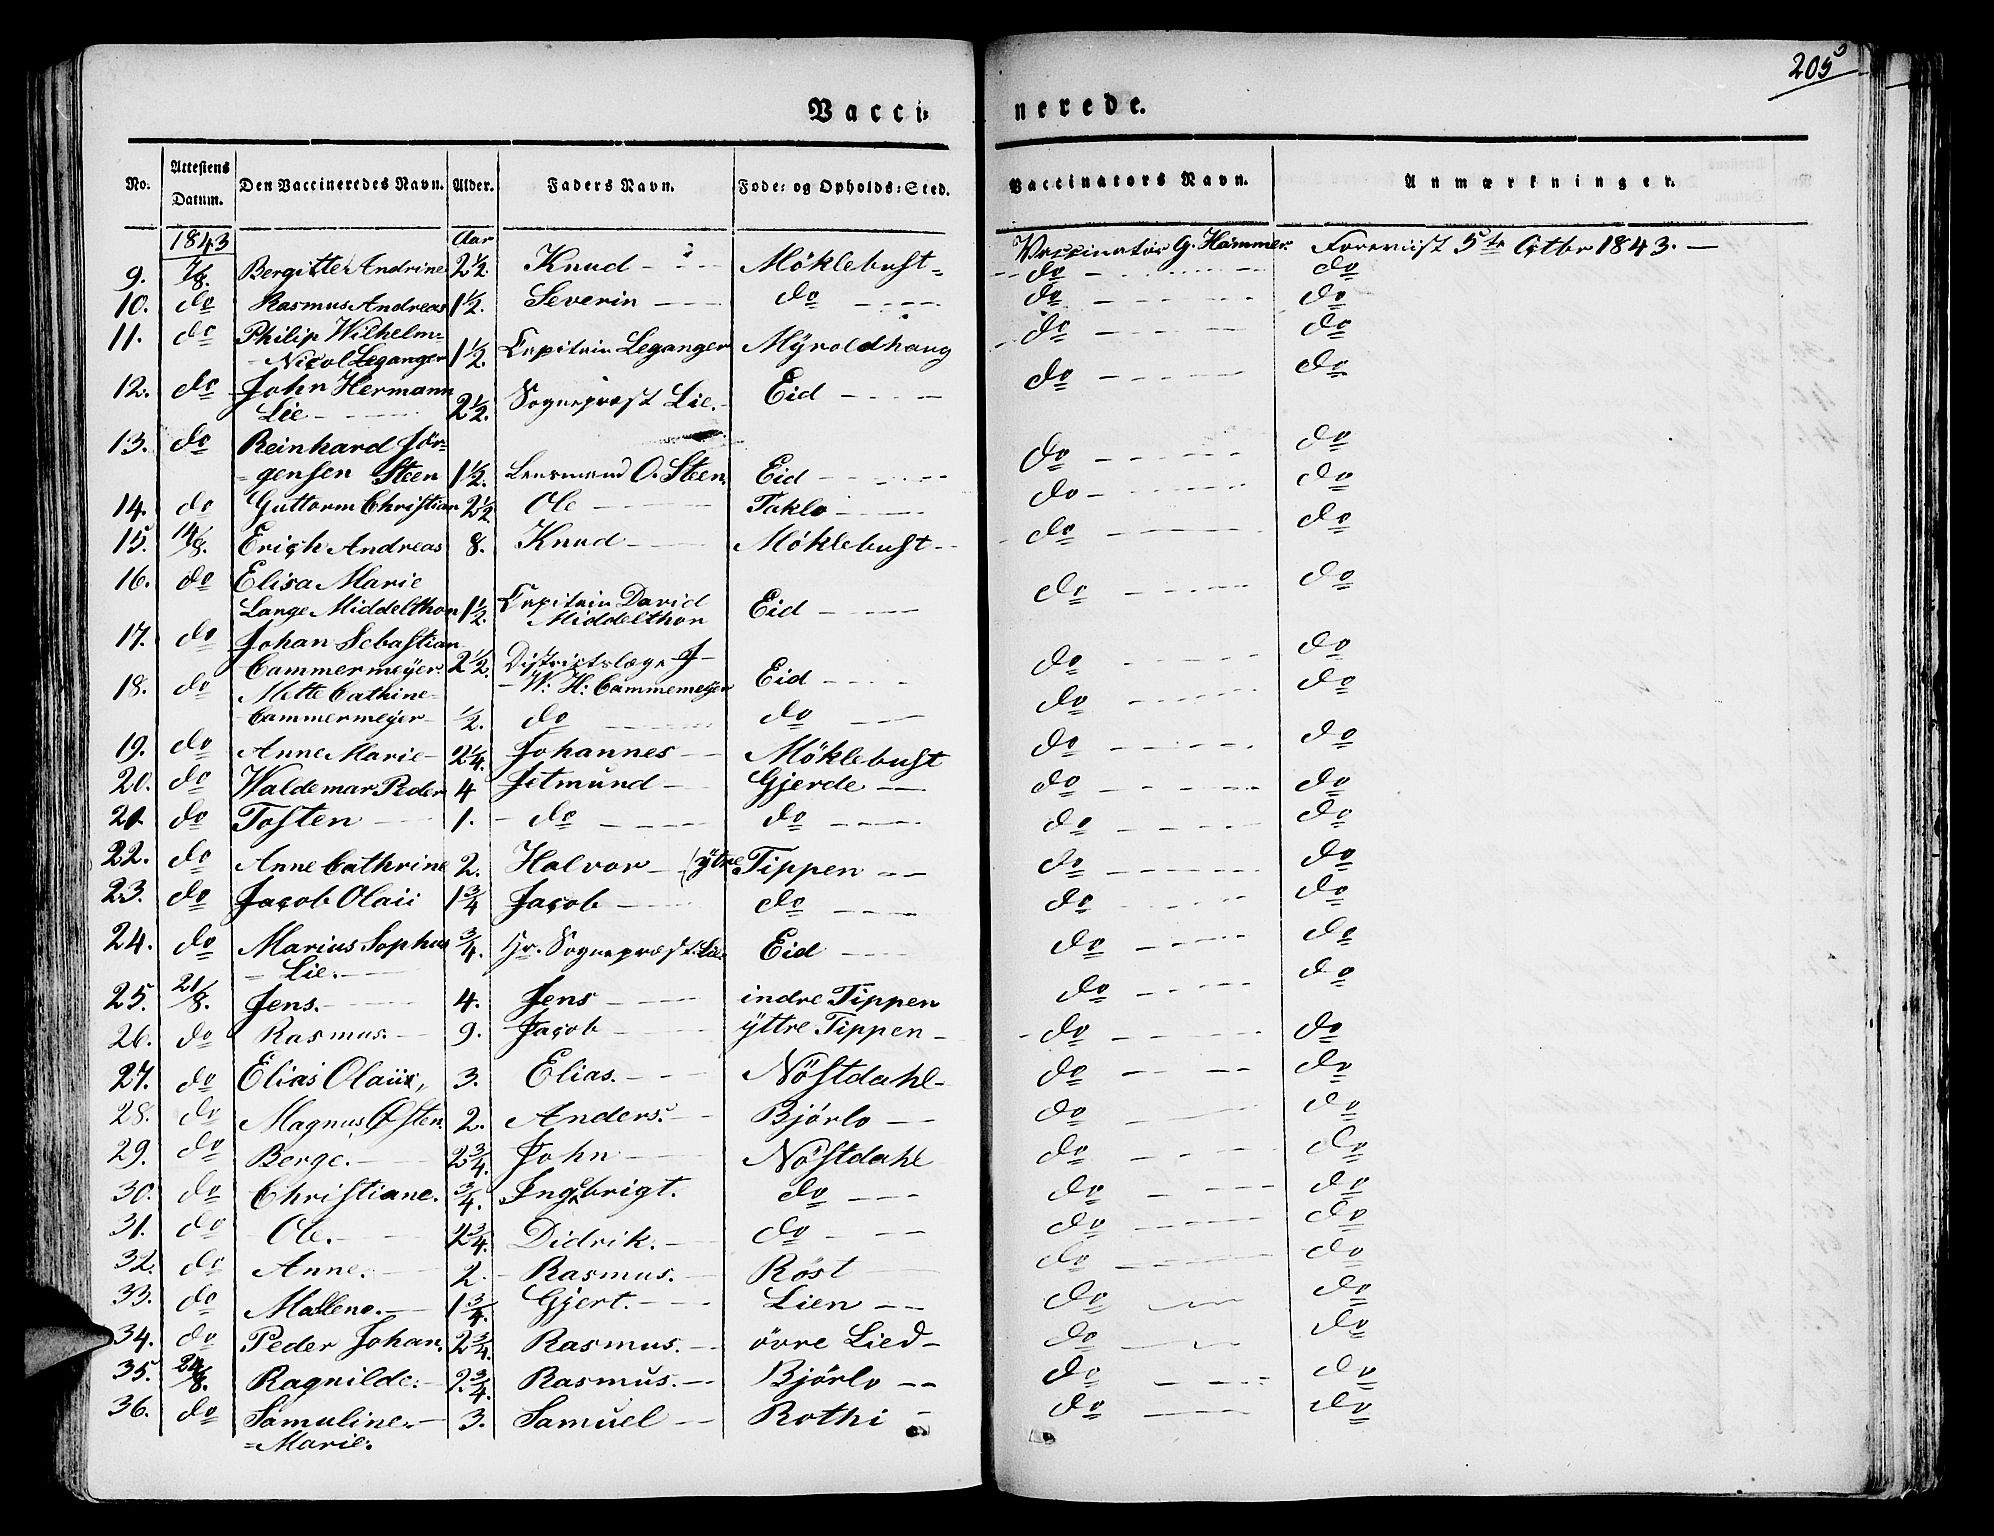 205
Vacci=nerede.
No. Attestens Datum. Den Vaccineredes Navn. Alder. Faders Navn. Føde= og Opholds=Sted. Vaccinators Navn. Anmærkninger.
1843 Aar Vaccinatør G. Hammer Foreviist 5te Octbr 1843. —
9. 7/8. Bergitte Andrine 2½. Knud Möklebust do do
10. do Rasmus Andreas 1½. Severin do do do
11. do Philip Wilhelm
Nicol Leganger 1½. Capitain Leganger Myroldhaug do do
12. do John Hermann
Lie 2½. Sogneprest Lie. Eid do do
13. do Reinhard Jör-
gensen Steen 1½. Lensmand O. Steen Eid do do
14. do Guttorm Christian 2½ Ole Taklo do do
15. 14/8. Erich Andreas 8. Knud Möklebust do do
16. do Elisa Marie
Lange Middelthon 1½. Capitain David
Middelthon Eid do do
17. do Johan Sebastian
Cammermeyer. 2½. Districtslæge J
W: H: Cammemeyer Eid do do
18. do Mette Cathine
Cammermeyer ½. do do do do
19. do Anne Marie 2¼. Johannes Möklebust do do
20. do Waldemar Peder 4 Jetmund Gjerde do do
21. do Tosten 1. do do do do
22. do Anne Cathrine 2. Halvor (ytre Tippen do do
23. do Jacob Olaii 1¾ Jacob do do do
24. do Marius Sophus
Lie. ¾. Hr. Sogneprest Lie Eid do do
25. 21/8. Jens. 4. Jens indre Tippen do do
26. do Rasmus. 9. Jacob yttre Tippen do do
27. do Elias Olaus, 3. Elias. Nöstdahl do do
28. do Magnus Østen. 2. Anders. Bjórlo do do
29. do Berge. 2¾. John Nöstdahl do do
30. do Christiane. ¾. Ingebrigt. do do do
31. do Ole. 2¾. Didrik. do do do
32. do Anne. 2. Rasmus. Röst do do
33. do Mallene. 1¾. Gjert. Lien do do
34. do Peder Johan. 2¾. Rasmus. övre Lied do do
35. 24/8. Ragnilde. 2¾. Rasmus. Bjórlo do do
36. do Samuline
Marie. 3. Samuel Rothi do do